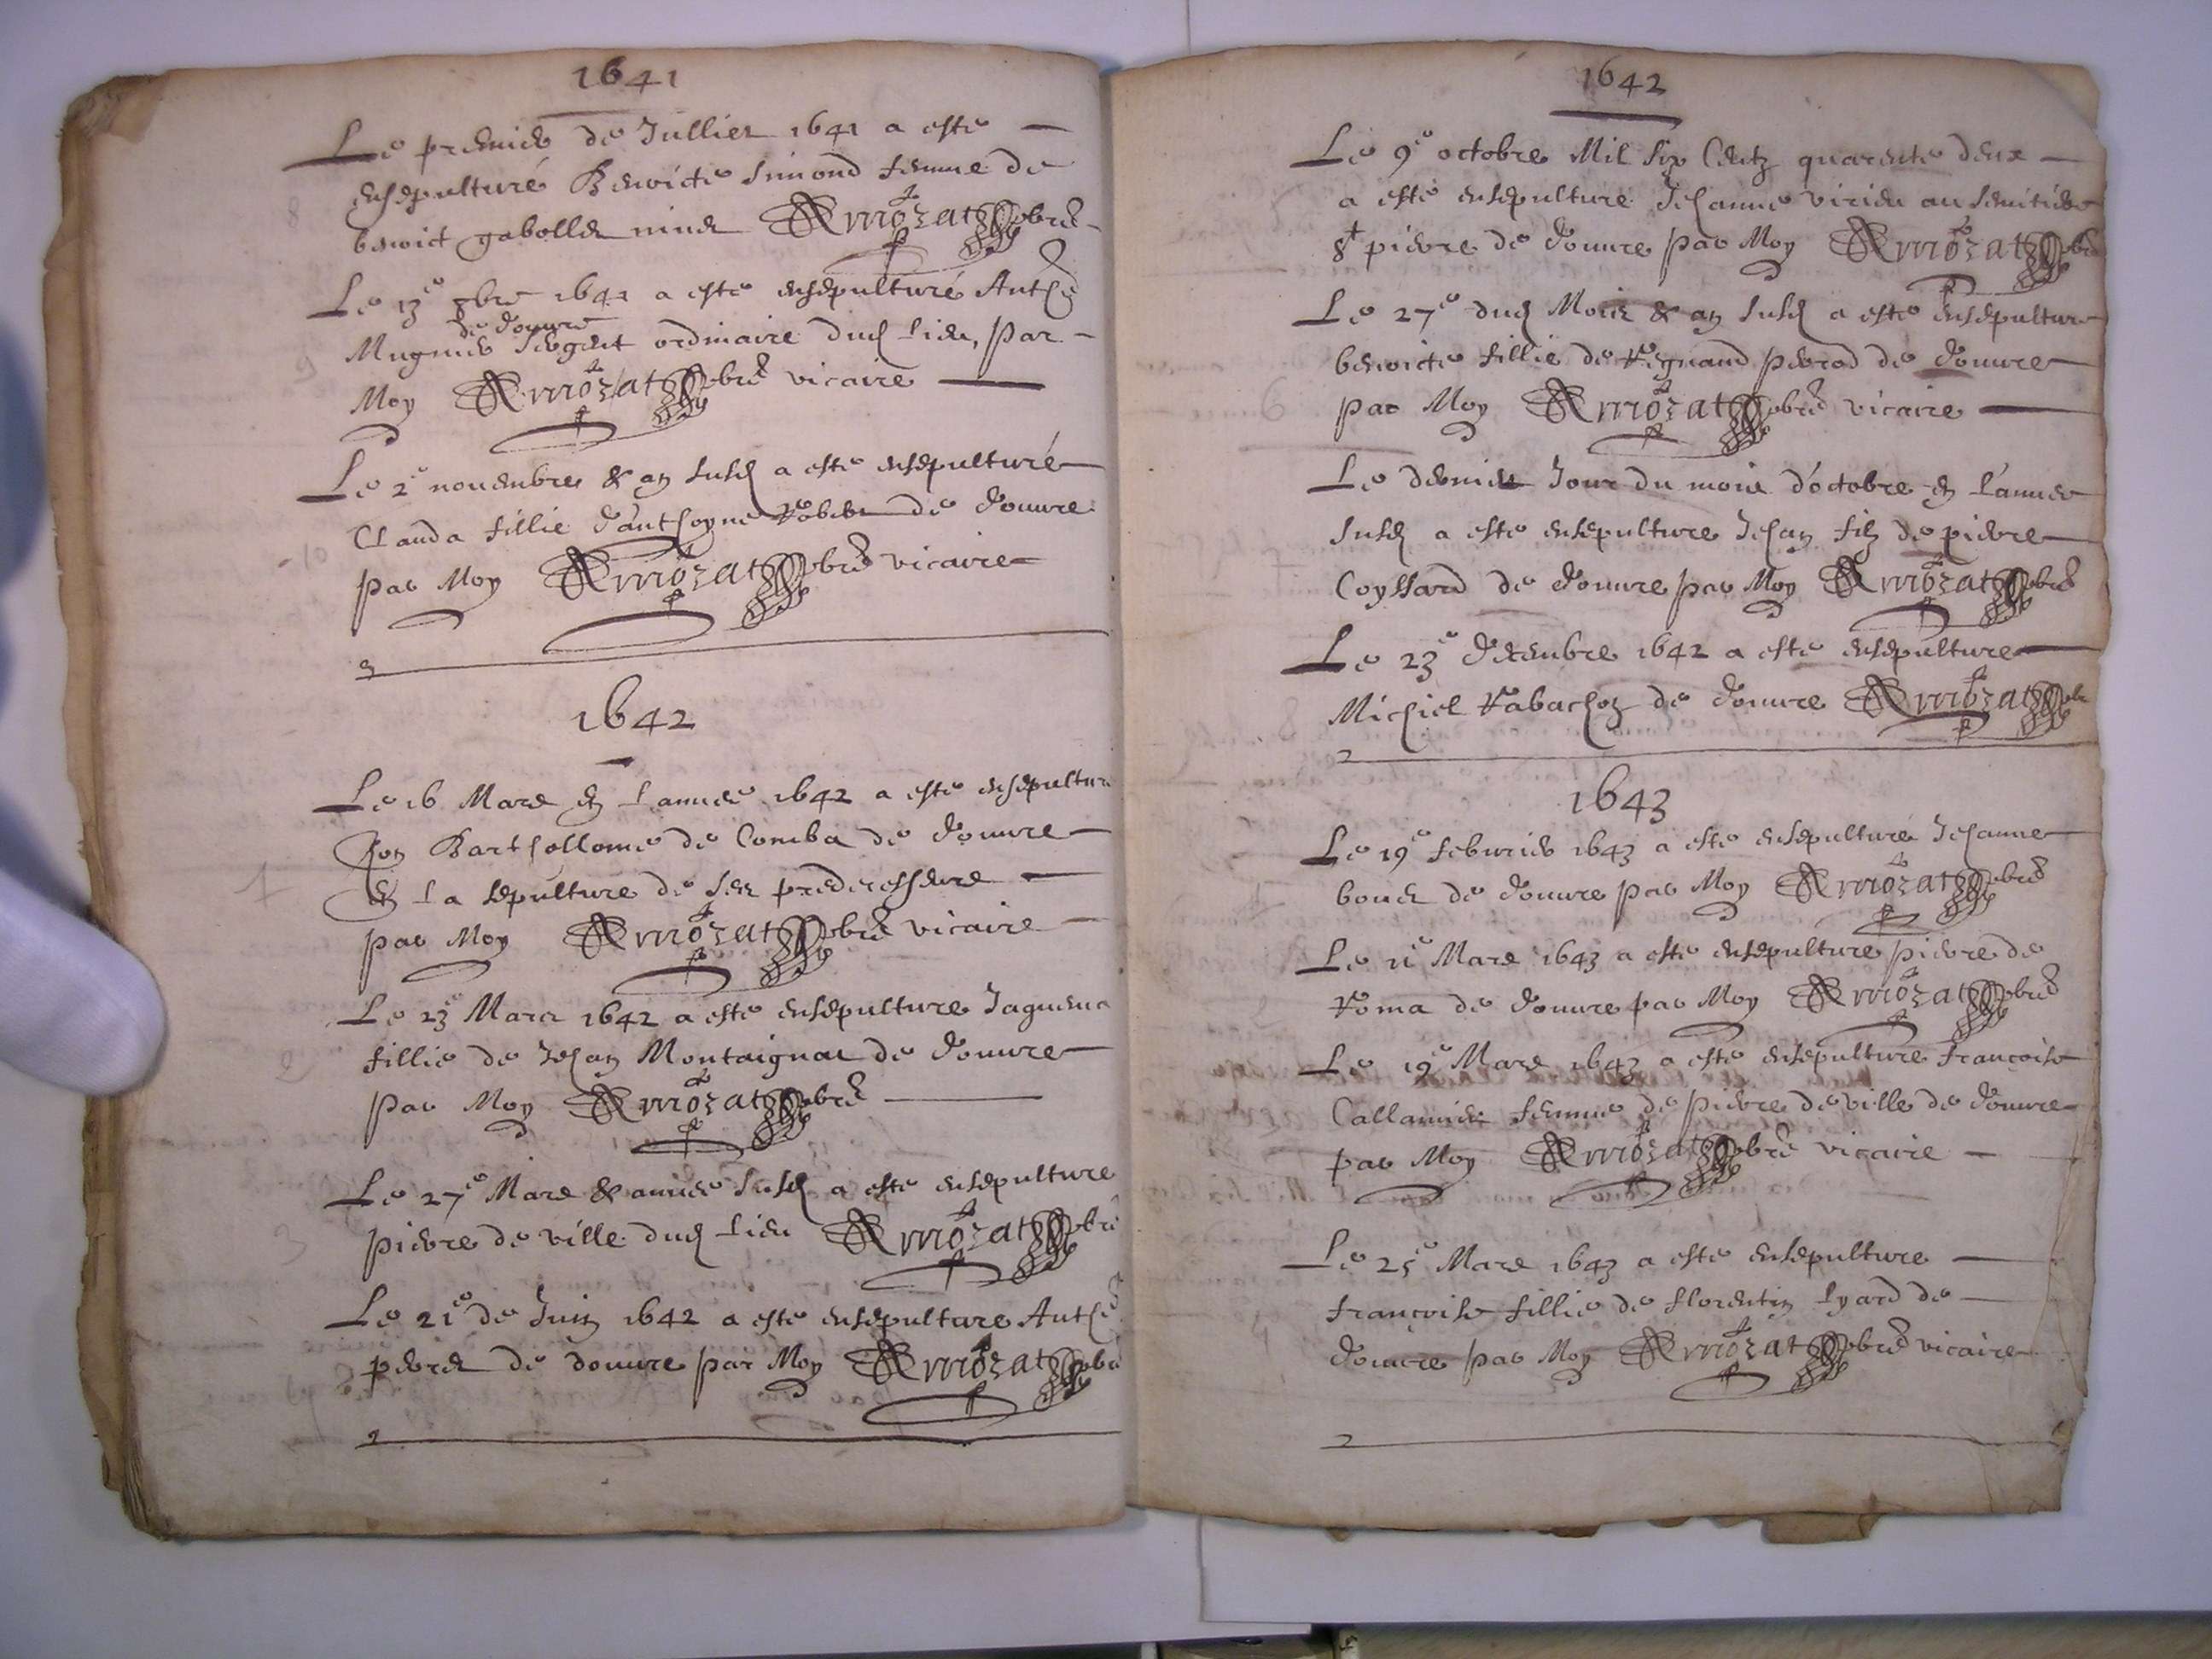 1641
Le premier de Jullier 1641 a este
ensepulturé Benoicte Simond femme de
8
benoict gabollet miner Armozat pbre
Le 13e 8bre 1641 a este ensepulturé Anthe
de douure
Mugnier sergent ordinaire dud lieu, par
9
Moy Armozat pbre vicaire
Le 2e nouembre & an susd a este ensepulturé
Clauda fillie d'anthoyne Robert de douure
10
par Moy Armozat pbre vicaire
1642
Le 16 Mars en l'annee 1642 a este ensepulture
hon Barthollome de Comba de douure
1
en la sepulture de ses predecesseurs
par Moy Armozat pbre vicaire
Le 23e Mars 1642 a este ensepulture Jaquema
fillie de Jehan Montaignat de douure
2
par Moy Armozat pbre
Le 27e Mars & annee susd a este ensepulture
3
pierre de ville dud lieu Armozat pbre
Le 21e de Juin 1642 a este ensepulture Anthe
perret de douure par Moy Armozat pbre
1642
Le 9e octobre Mil six Centz quarente deux
a este ensepulture Jehanne virieu au semitiere
St pierre de douure par Moy Armozat pbre
Le 27e dud Mois & an susd a este ensepulture
benoicte fillie de Regnaud perrod de douure
6
par Moy Armozat pbre vicaire
Le dernier Jour du mois d'octobre en l'annee
susd a este ensepulture Jehan filz de pierre
Coyssard de douure par Moy Armozat pbre
Le 23e Decembre 1642 a este ensepulture
Michiel Rabachoz de douure Armozat pbre
1643
Le 19e feburier 1643 a este ensepulturé Jehanne
bouer de douure par Moy Armozat pbre
Le 11e Mars 1643 a este ensepulture pierre de
Roma de douure par Moy Armozat pbre
Le 19e Mars 1643 a este ensepulture francoise
Callamier femme de pierre de ville de douure
par Moy Armozat pbre vicaire
Le 25e Mars 1643 a este ensepulture
françoise fillie de florentin lyard de
douure par Moy Armozat pbre vicaire